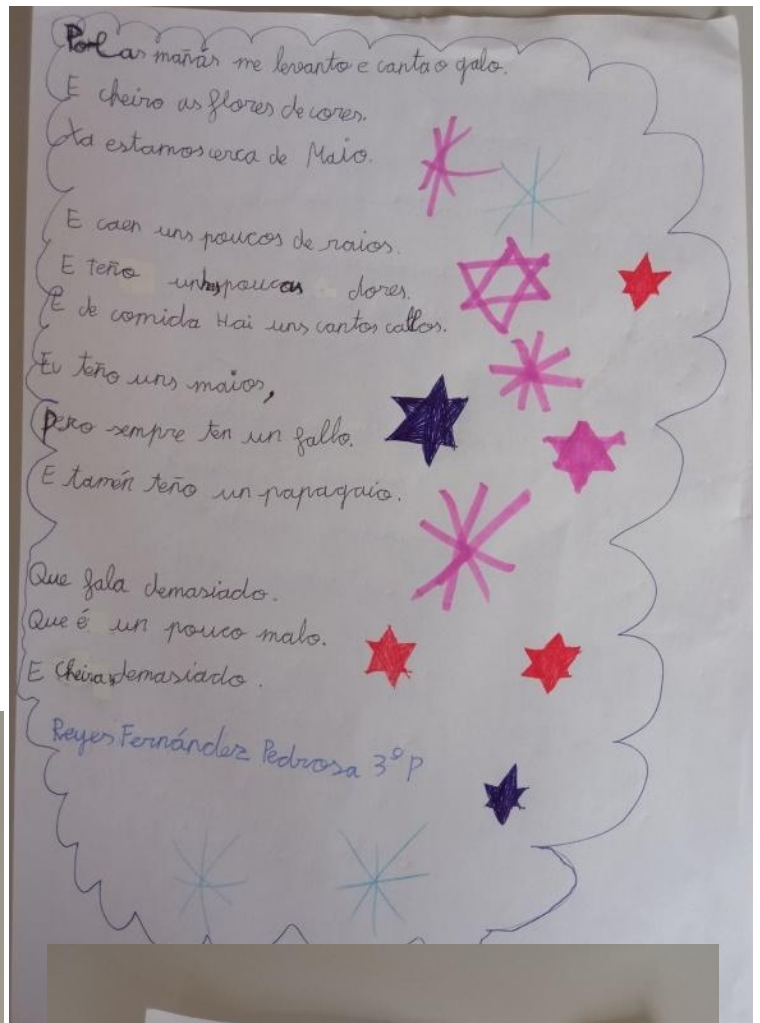 Por las mañás me levanto e canta o galo.
E cheiro as flores de cores.
Xa estamos cerca de Maio.
E caen uns poucos de raios.
E teño unhas poucas dores.
E de comida Hai uns cantos callos.
Eu teño uns maios,
pero sempre ten un fallo.
E tamén teño un papagaio.
Que fala demasiado.
Que é un pouco malo.
E Cheira demasiado.
Reyes Fernández Pedrosa 3º P